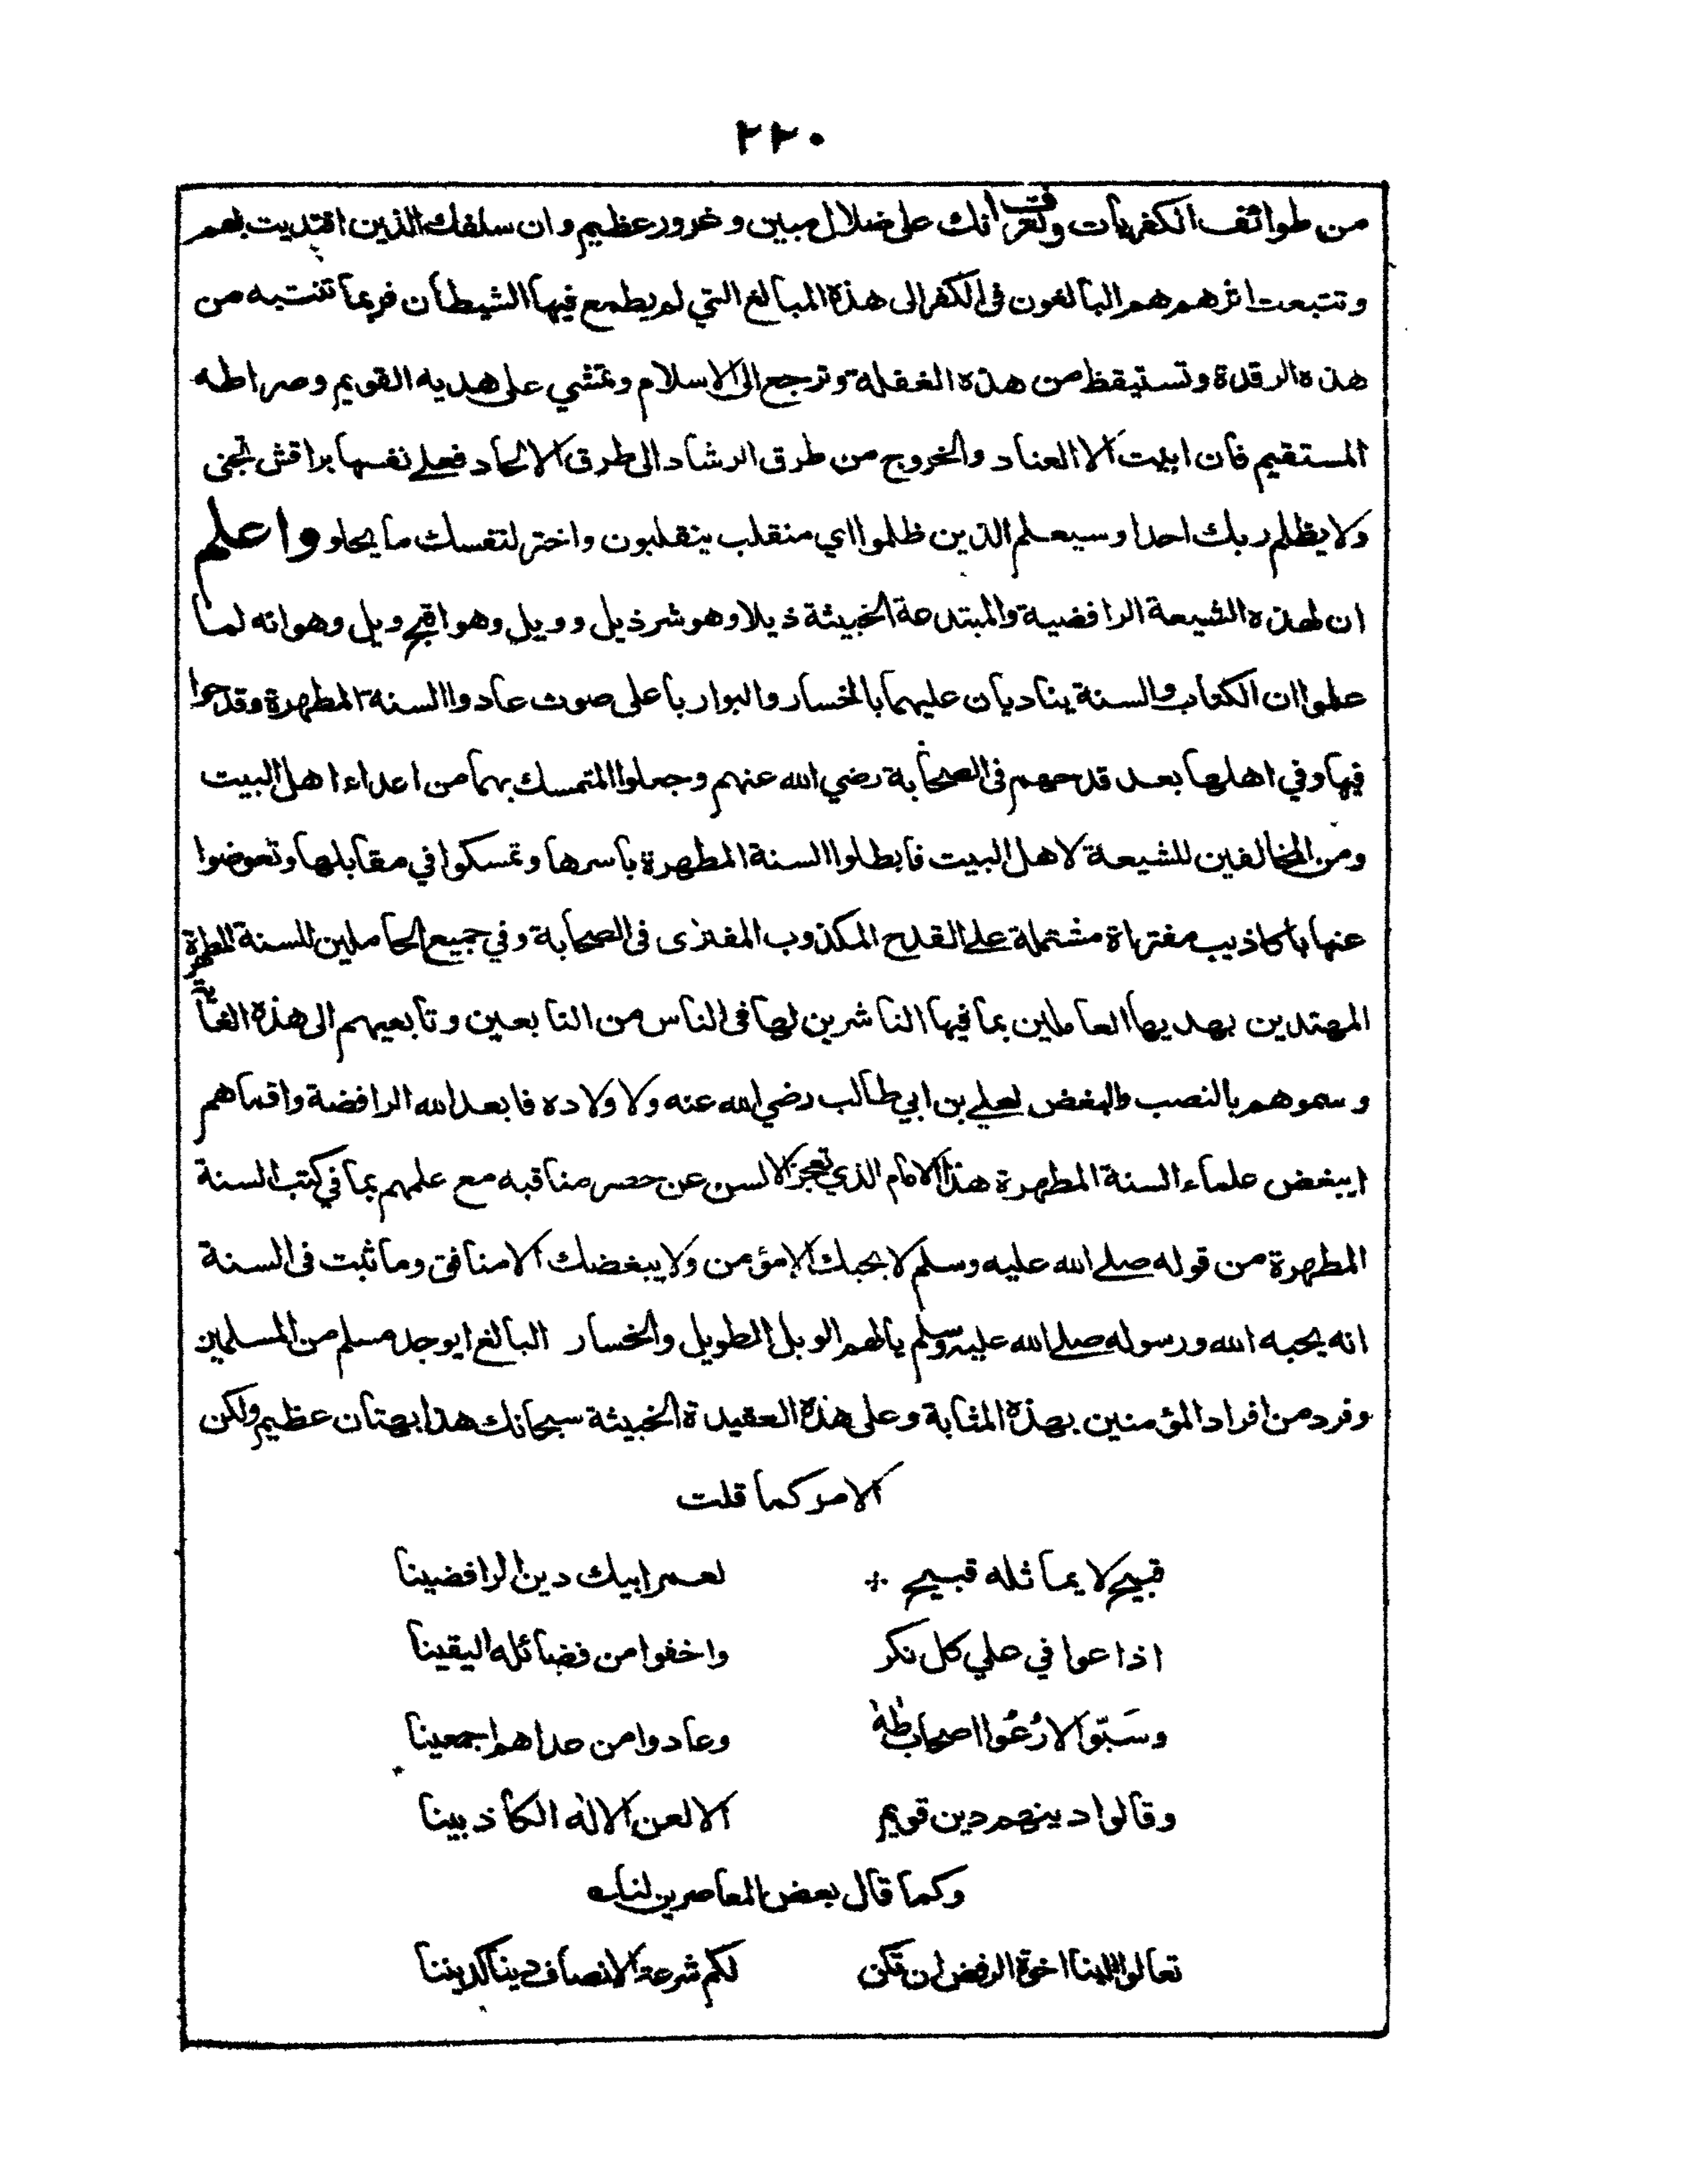 ٢٢٠
من طوائف الكفريات ولتعرف انك على ضلال مبين وغرور عظيم وان سلفك الذين اقتديت بهم
وتتبعت اثرهم هم البالغون فى الكفر الى هذه المبالغ التي لم يطمع فيها الشيطان فربما تنتبه من
هذه الرقدة وتستيقظ من هذه الغفلة وترجع الى الاسلام وتمشي على هديه القويم وصراطه
المستقيم فان ابيت الا العناد والخروج من طرق الرشاد الى طرق الالحاد فعلے نفسها براقش تجنى
ولا يظلم ربك احدا وسيعلم الذين ظلموا اي منقلب ينقلبون واختر لنفسك ما يحلو واعلم
ان لهذه الشيعة الرافضية والمبتدعة الخبيثة ذيلا وهو شر ذيل وويل وهو اقبح ويل وهو انه لما
علموا ان الكتاب والسنة يناديان عليهما بالخسار والبوار باعلى صوت عادوا السنة المطهرة وقدحوا
فيها وفي اهلها بعد قدحهم فى الصحابة رضي الله عنهم وجعلوا المتمسك بهما من اعداء اهل البيت
ومن المخالفين للشيعة لاهل البيت فابطلوا السنة المطهرة باسرها وتمسكوا في مقابلها وتعوضوا
عنها باكاذيب مفتراة مشتملة علے القدح المكذوب المفترى فى الصحابة وفي جميع الحاملين للسنة المطهرة
المهتدين بهديها العاملين بما فيها الناشرين لها فى الناس من التابعين وتابعيهم الى هذه الغاية
وسموهم بالنصب والبغض لعلے بن ابي طالب رضي الله عنه ولاولاده فابعد الله الرافضة واقماهم
ايبغض علماء السنة المطهرة هذا الامام الذي تعجز الالسن عن حصر مناقبه مع علمهم بما في كتب السنة
المطهرة من قوله صلے الله عليه وسلم لا يحبك الا مؤمن ولا يبغضك الا منافق وما ثبت فى السنة
انه يحبه الله ورسوله صلے الله عليه وسلم يالهم الويل الطويل والخسار البالغ ايوجد مسلم من المسلمين
وفرد من افراد المؤمنين بهذه المثابة وعلى هذه العقيدة الخبيثة سبحانك هذا بهتان عظيم ولكن
الامر كما قلت
قبيح لا يماثله قبيح ؞ لعمر ابيك دين الرافضينا
اذاعوا في علي كل نكر واخفوا من فضائله اليقينا
وسَبّوا لا رُعُوا اصحاب طٰهٰ وعادوا من عداهم اجمعينا
وقالوا دينهم دين قويم الا لعن الاله الكاذبينا
وكما قال بعض المعاصرين لنا
تعالوا الينا اخوة الرفض ان تكن لكم شرعة الانصاف دينا كديننا